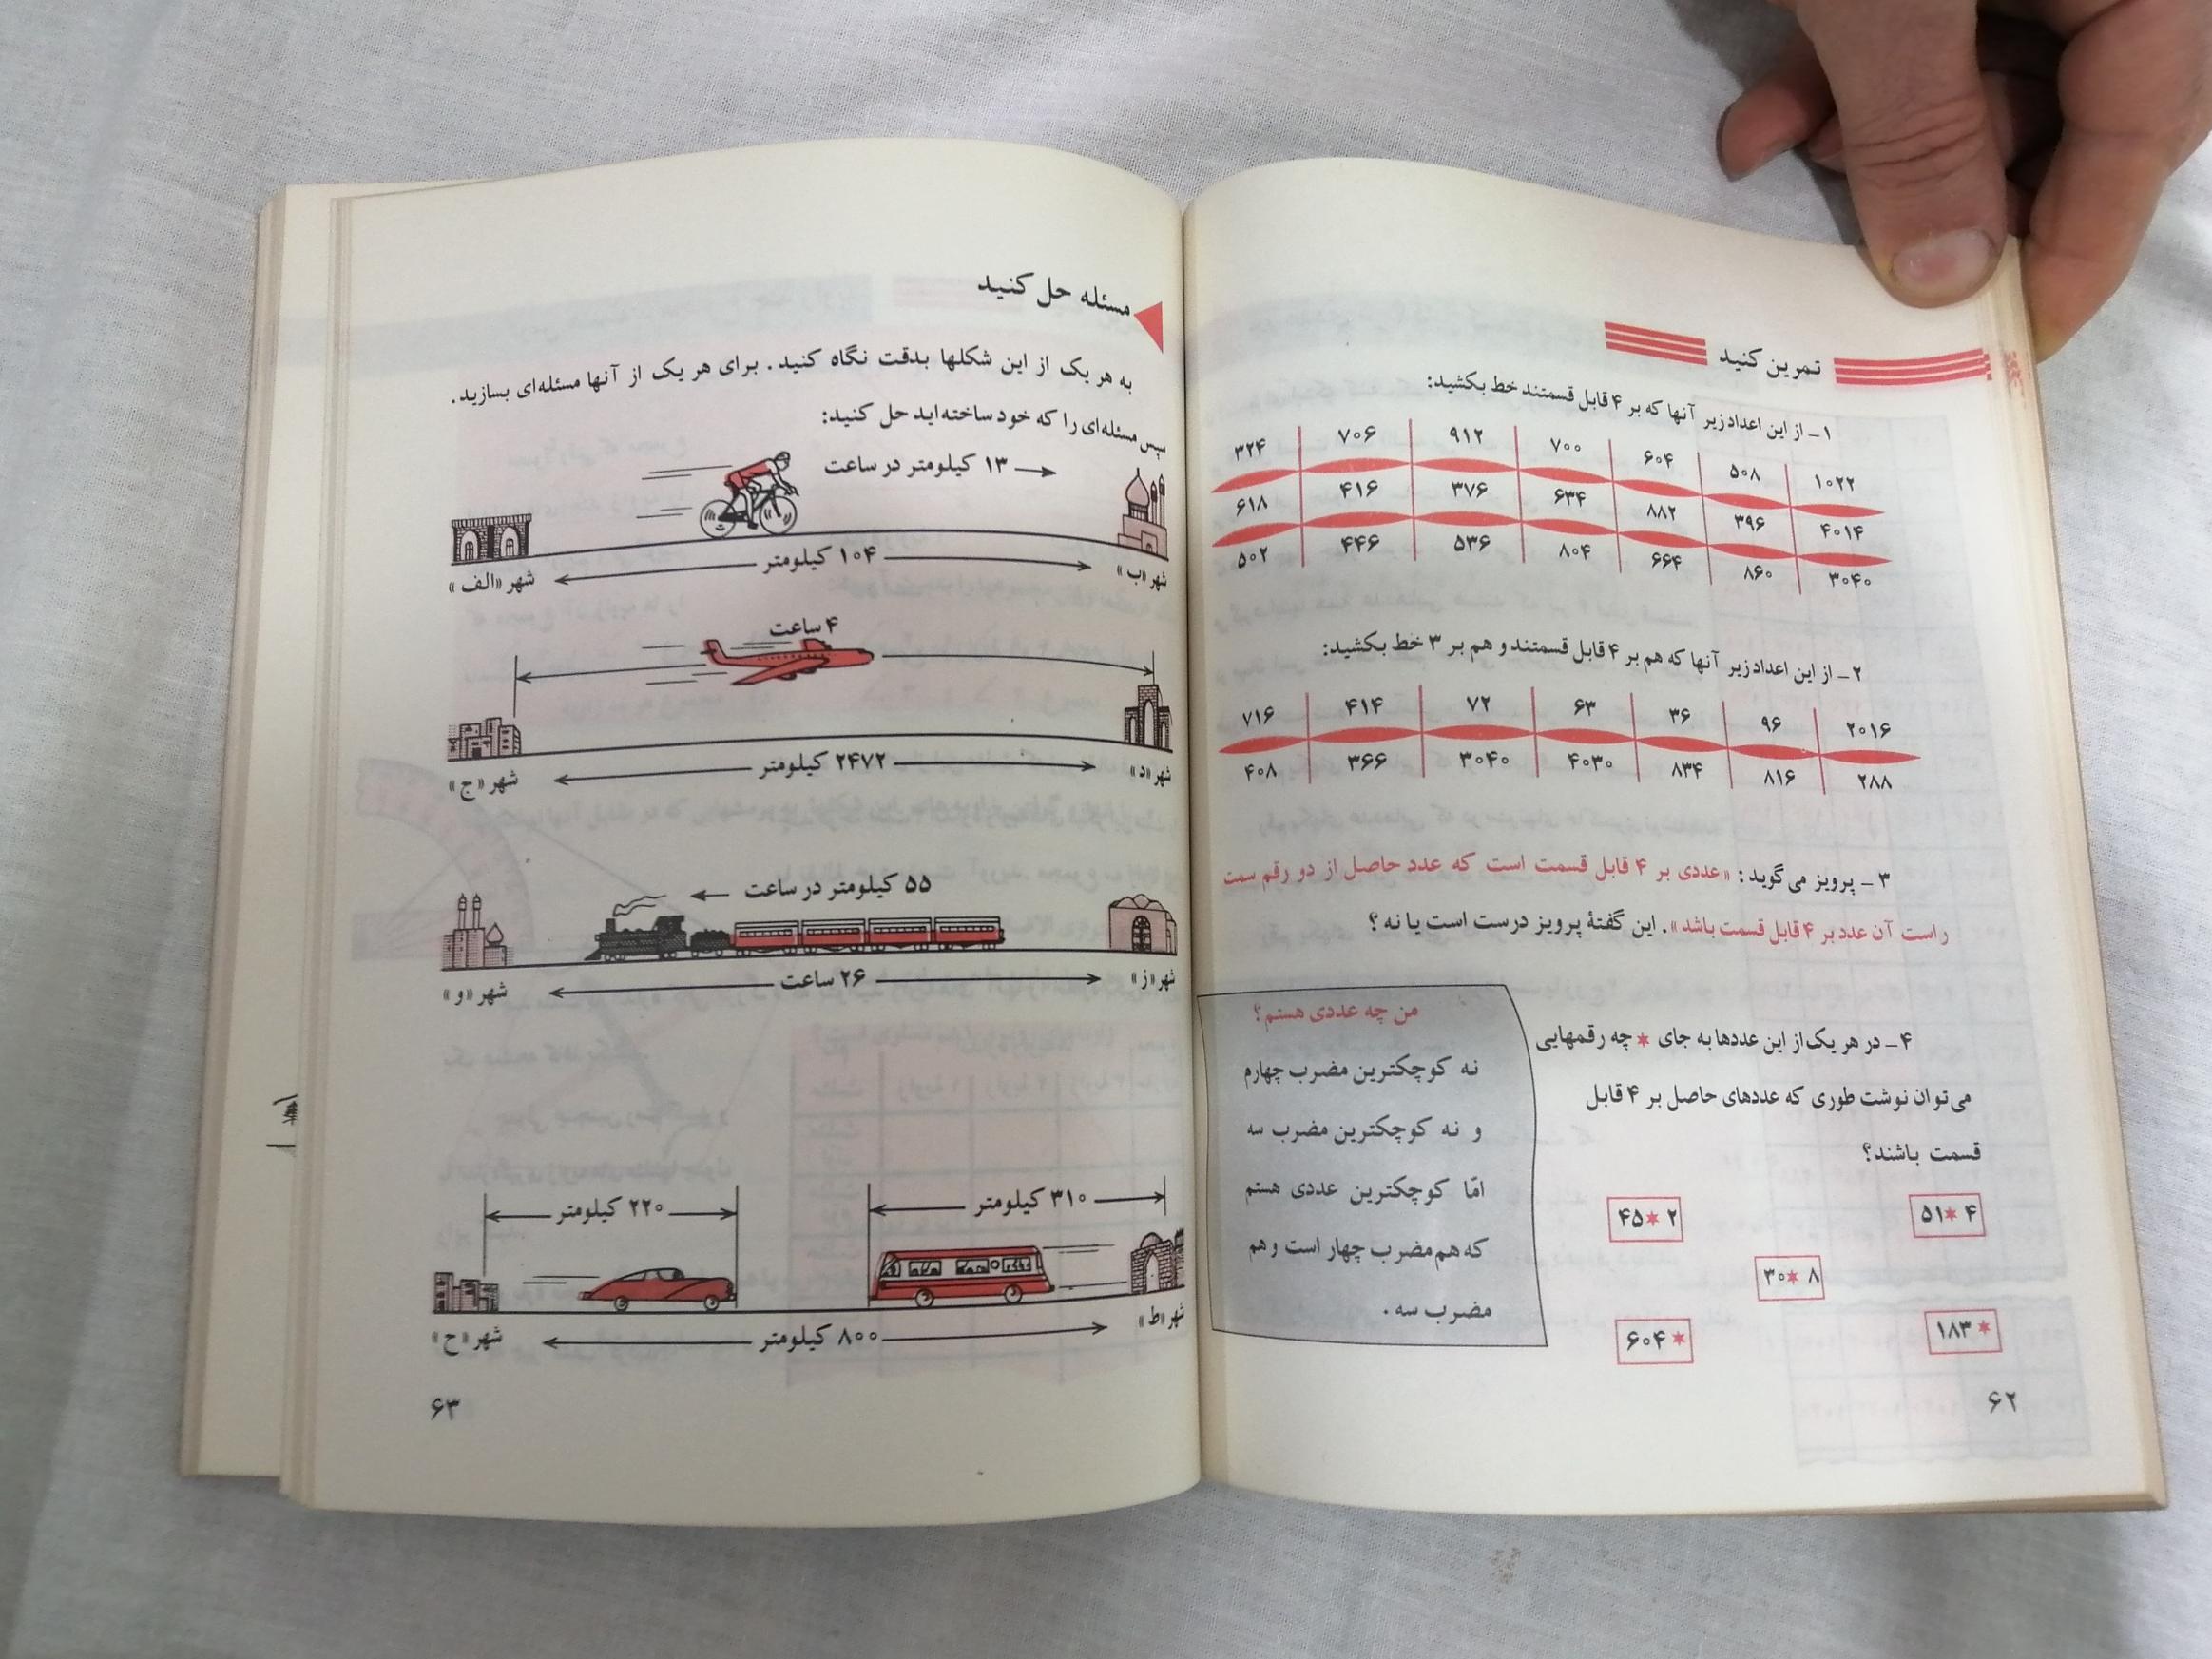 تمرین کنید
۱ـ از این اعداد زیر آنها که بر ۴ قابل قسمتند خط بکشید:
۱۰۲۲ ۵۰۸ ۶۰۴ ۷۰۰ ۹۱۲ ۷۰۶ ۳۲۴
۴۰۱۴ ۳۹۶ ۸۸۲ ۶۳۴ ۳۷۶ ۴۱۶ ۶۱۸
۳۰۴۰ ۸۶۰ ۶۶۴ ۸۰۴ ۵۳۶ ۴۴۶ ۵۰۲
۲ـ از این اعداد زیر آنها که هم بر ۴ قابل قسمتند و هم بر ۳ خط بکشید:
۲۰۱۶ ۹۶ ۳۶ ۶۳ ۷۲ ۴۱۴ ۷۱۶
۲۸۸ ۸۱۶ ۸۳۴ ۴۰۳۰ ۳۰۴۰ ۳۶۶ ۴۰۸
۳ ـ پرویز می‌گوید: «عددی بر ۴ قابل قسمت است که عدد حاصل از دو رقم سمت
راست آن عدد بر ۴ قابل قسمت باشد». این گفتهٔ پرویز درست است یا نه؟
۴ـ در هر یک از این عددها به جای * چه رقمهایی
می‌توان نوشت طوری که عددهای حاصل بر ۴ قابل
قسمت باشند؟
۵۱*۴
۴۵*۲
۳۰*۸
۱۸۳*
۶۰۴*
من چه عددی هستم؟
نه کوچکترین مضرب چهارم
و نه کوچکترین مضرب سه
امّا کوچکترین عددی هستم
که هم مضرب چهار است و هم
مضرب سه.
۶۲
مسئله حل کنید
به هر یک از این شکلها بدقت نگاه کنید. برای هر یک از آنها مسئله‌ای بسازید.
سپس مسئله‌ای را که خود ساخته‌اید حل کنید:
۱۳ کیلومتر در ساعت
۱۰۴ کیلومتر
شهر «ب»
شهر «الف»
۴ ساعت
۲۴۷۲ کیلومتر
شهر «د»
شهر «ج»
۵۵ کیلومتر در ساعت
۲۶ ساعت
شهر «ز»
شهر «و»
۳۱۰ کیلومتر
۲۲۰ کیلومتر
شهر «ط»
۸۰۰ کیلومتر
شهر «ح»
۶۳